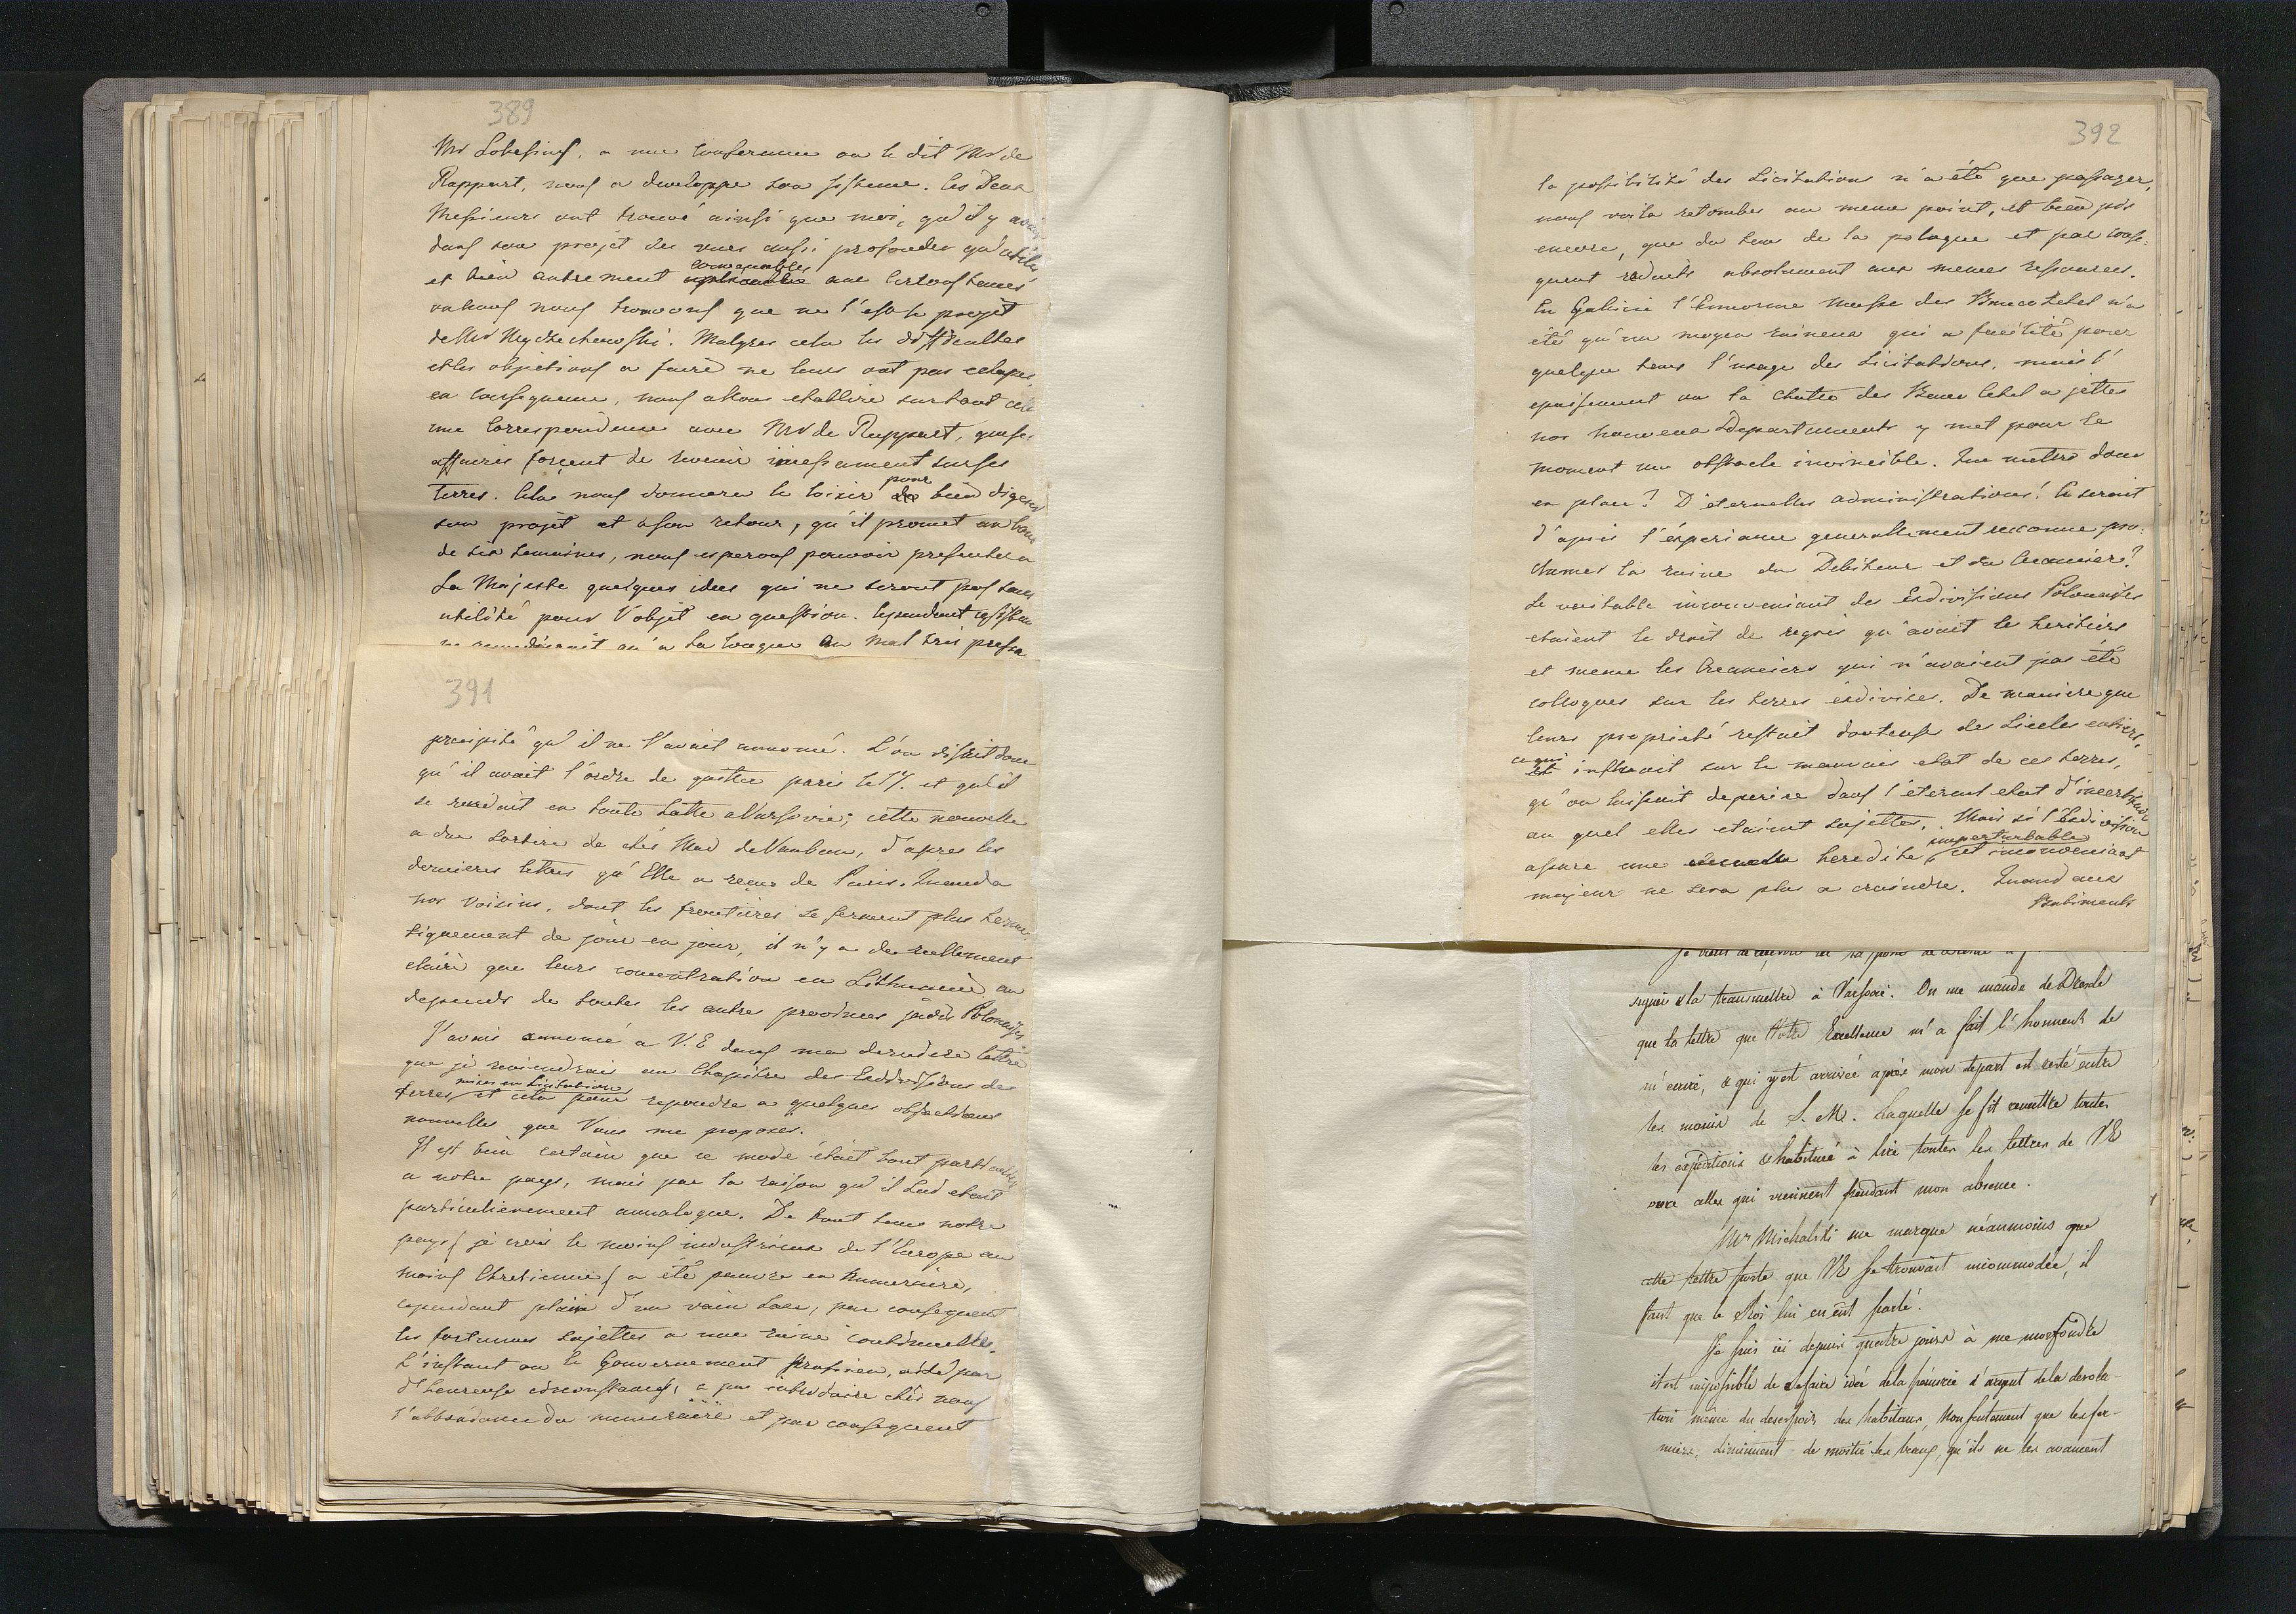 389
Mr Lobesius, a une conference ou le dit Mr de
Rappart, nous a developpe son sisteme. Les deux
Messieurs ont trouvé ainsi que moi, qu'il y avait
dans son projet des vues aussi profondes qu'utiles
et bien autrement convenables aux circonstances
ou nous nous trouvons que ne l'est le projet
de Mr Malgres cela les difficultes
et les objections a faire ne leurs ont pas echapes
en consequence, nous allons etablire surtout cela
une correspondence avec Mr de Rappart, que ses
affaires forçent de revenir incessament sur ses
terres. Cela nous donnera le loisir pour bien digerer
son projet et a son retour, qu'il promet au bout
de six semaines, nous esperons pouvoir presenter a
Sa Majeste quelques idees qui ne seront pas sans
utilité pour l'objet en question. Cependent
qu'a la longue Au mal tres
391
precipité qu'il ne l'avait annoncé. L'on disait donc
qu'il avait l'ordre de quitter paris le 17. et qu'il
se rendait en toute hatte a Varsovie; cette nouvelle
a due sortire de chés Mad de Vauban, d'apres les
dernieres lettres qu'Elle a reçue de Paris. Quand a
nos voisins, dont les frontières se ferment plus herme
tiquement de jour en jour, il n'y a de reellement
claire que leurs concentration en Lithuanie au
depends de toutes les autre provinces jadis Polonaises
J'avais annoncé a V.E dans ma derniere lettre
que je reviendrais au Chapitre des Exdivisions des
terres mises en Licitation et cela pour repondre a quelques objections
nouvelles que Vous me proposes.
Il est bien certain que ce mode était tout particulier
a notre pays, mais par la raison qu'il lui etait
particulierement annalogue. De tout tems notre
pays / je crois le moins industrieux de l'Europe au
moins Chretienne / a été pauvre en Numeraire,
cependant plain d'un vain luxe, par consequent
les fortunes sujettes a une ruine continuelle.
L'instant ou le Gouvernement prussien, aidé par
d'heureuse circonstances, a pu introduire chés nous
l'abbondance du numeraire et par consequent
392
la possibilité des Licitations n'a été que passager,
nous voila retombes au meme point, et bien pis
encore, que du tems de la pologne et par conse:
quent reduits absolument aux memes ressources.
En Galicie l'Ennorme masse des Banco Zetel n'a
été qu'un moyen ruineux qui a facilité pour
quelque tems l'usage des Licitations, mais l'
epuisement ou la chutte des Banco Zetel a jettes
nos nouveaux Departements y met pour le
moment un obstacle invincible. Que mettre donc
en place? D'eternelles administrations! Ce serait
d'après l'experiance generallement reconnue pro:
clamer la ruine du Debiteur et du Creancier?
Le veritable inconveniant des Exdivisions Polonaises
etaient le droit de regrès qu'avait le heritiers
et meme les Creanciers qui n'avaient pas été
colloques sur les terres exdivises. De maniere que
leurs proprieté restait douteuse des Siecles entiers,
ce qui influait sur le mauvais etat de ces terres,
qu'on laissait deperire dans l'éternel etat d'incertitude
au quel elles etaient sujettes. Mais si l'Exdivision
assure une heredite imperturbable, cet inconveniant
majeur ne sera plus a craindre. Quand aux
Batiments
la transmettre à Varsovie. On me mande de Dresde
que la lettre que Votre Excellence m'a fait l'honneur de
m'ecrire, & qui y est arrivée après mon depart est resté entre
les mains de S. M. laquelle se fit remettre toutes
les expeditions & habitué à lire toutes les lettres de VE
ouvre celles qui viennent pendant mon absence.
Mr Michalski me marque néanmoins que
cette lettre porte que VE se trouvait incommodée, il
faut que le Roi lui en eut parlé.
Je suis ici depuis quatre jours à me morfondre
il est impossible de se faire idée de la penurie d'argent de la desola-
tion même du desespoir des habitans, Non seulement que les fer-
miers, diminuent de moitié les baux, qu'ils ne les avament